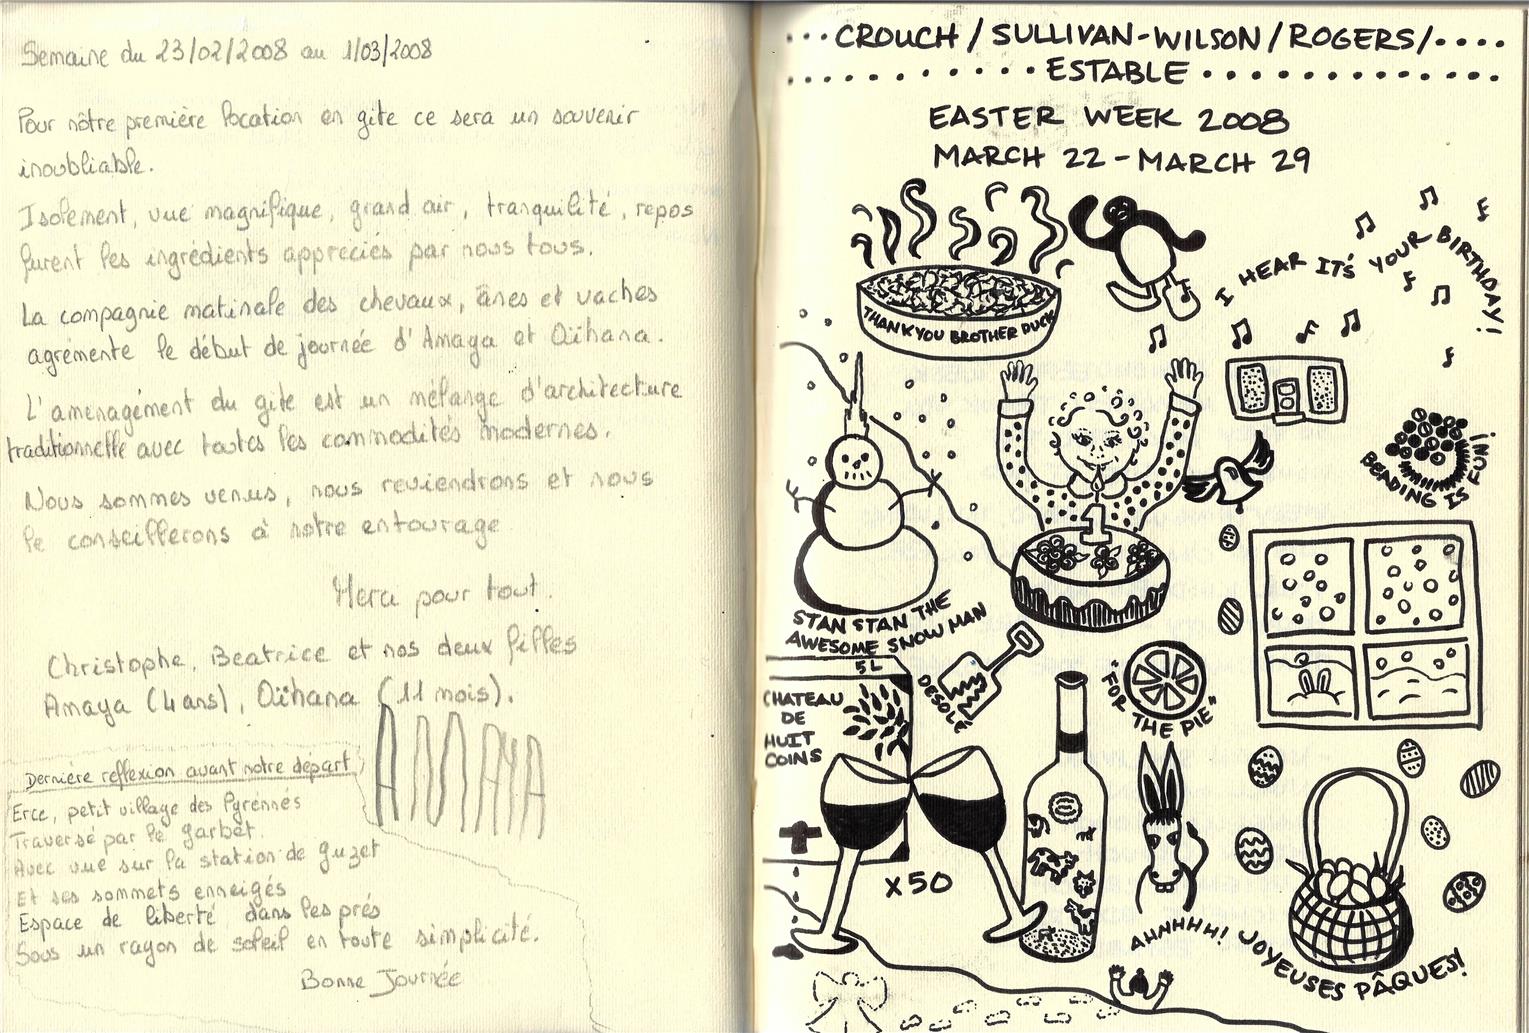 Semaine du 23/02/2008 au 1/03/2008
Pour nôtre première location en gite ce sera un souvenir
inoubliable.
Isolement, vue magnifique, grand air, tranquilité, repos
furent les ingrédients appreciés par nous tous.
La compagnie matinale des chevaux, ânes et vaches
agrémente le début de journée d'Amaya et Oïhana.
L'aménagément du gite est un mélange d'architecture
traditionnelle avec toutes les commodités modernes.
Nous sommes venus, nous reviendrons et nous
le conseillerons à notre entourage
Merci pour tout.
Christophe, Beatrice et nos deux filles
Amaya (4 ans), Oïhana (11 mois).
AMAYA
Dernière reflexion avant notre départ
Erce, petit village des Pyrénnés
Traversé par le garbet.
Avec vue sur la station de guzet
Et ses sommets enneigés
Espace de liberté dans les prés
Sous un rayon de soleil en toute simplicité.
Bonne Journée
CROUCH / SULLIVAN-WILSON / ROGERS /
ESTABLE
EASTER WEEK 2008
MARCH 22 - MARCH 29
THANK YOU BROTHER DUCK
I HEAR IT'S YOUR BIRTHDAY!
BEADING IS FUN!
1
STAN STAN THE
AWESOME SNOW MAN
5L
CHATEAU
DE
HUIT
COINS
DESOLÉ
"FOR THE PIE"
X50
AHHHHH! JOYEUSES PÂQUES!